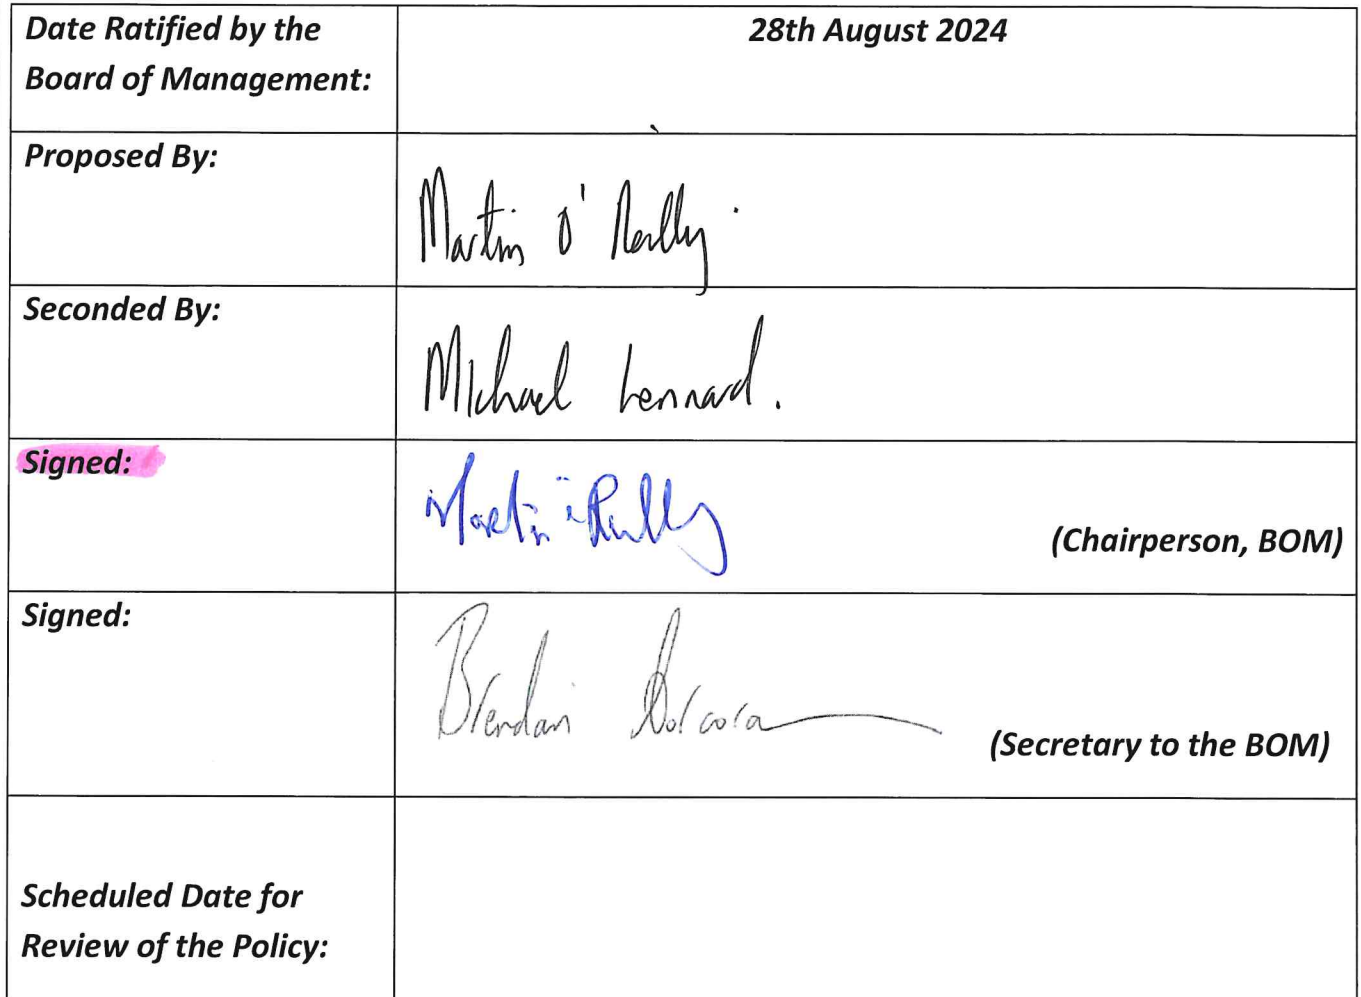 Date Ratified by the
Board of Management:
28th August 2024
Proposed By:
Martin O' Reilly
Seconded By:
Michael Lennard.
Signed:
Martin O'Reilly
(Chairperson, BOM)
Signed:
Brendan
(Secretary to the BOM)
Scheduled Date for
Review of the Policy: